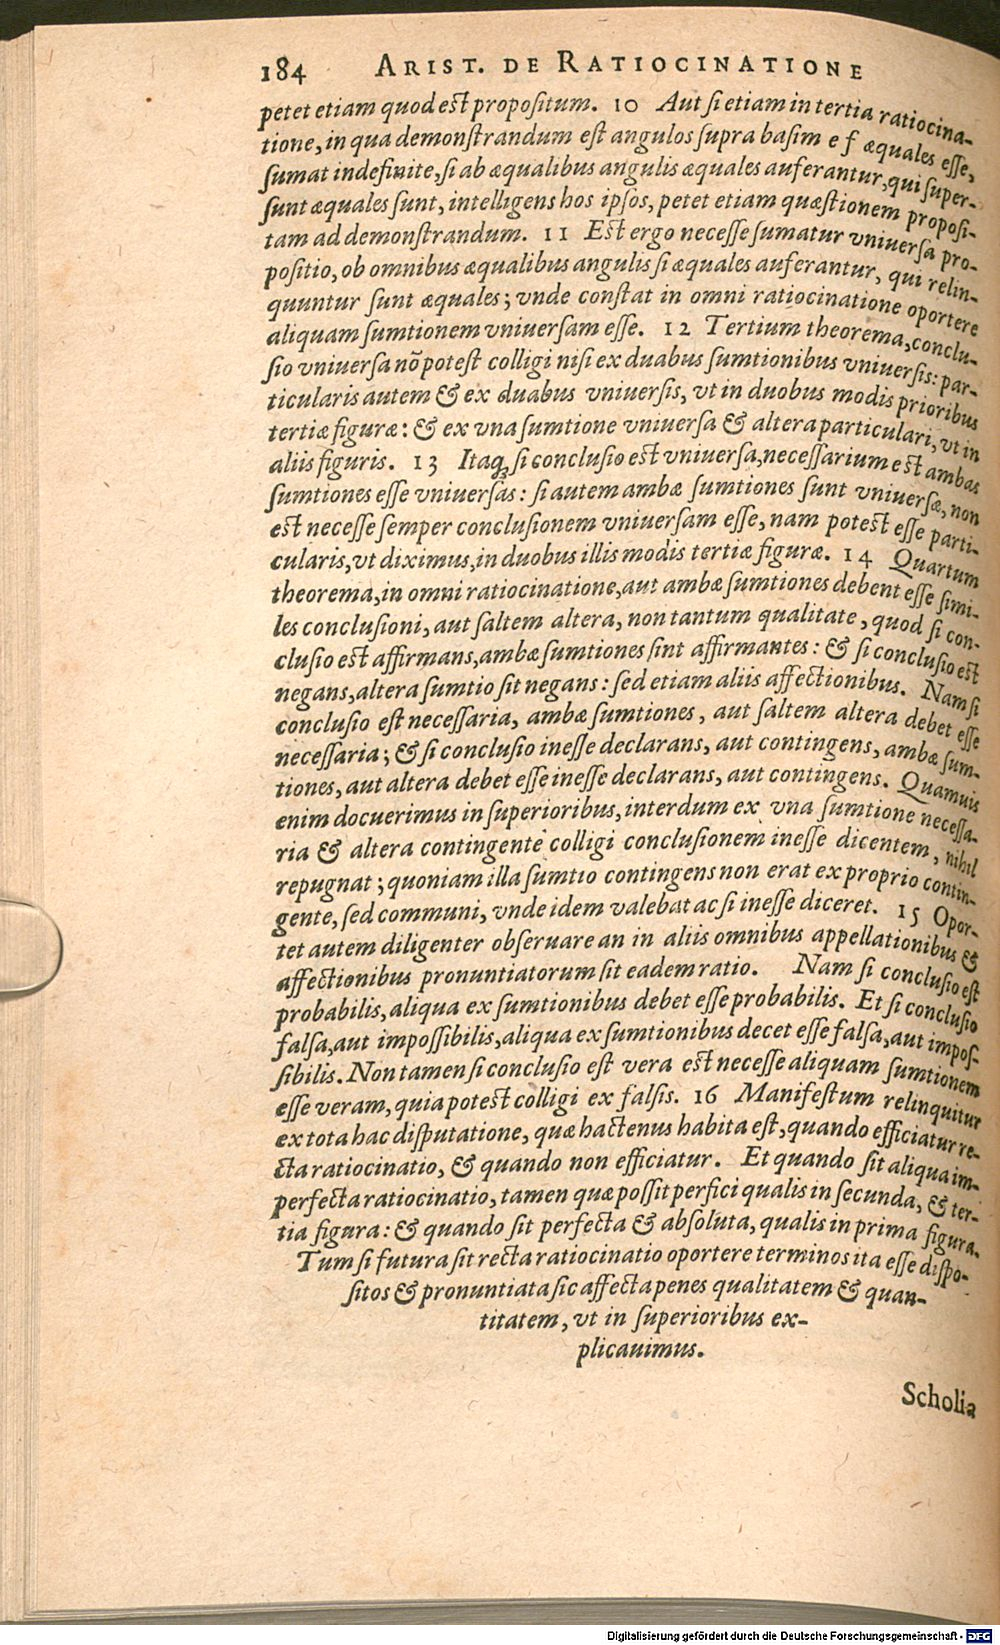 184 ARIST. DE RATIOCINATIONE
petet etiam quod est propositum. 10 Aut si etiam in tertia ratiocina-
tione, in qua demonstrandum est angulos supra basim e f æquales esse,
sumat indefinite, si ab æqualibus angulis æquales auferantur, qui super-
sunt æquales sunt, intelligens hos ipsos, petet etiam quæstionem proposi-
tam ad demonstrandum. 11 Est ergo necesse sumatur vniuersa pro-
positio, ob omnibus æqualibus angulis si æquales auferantur, qui relin-
quuntur sunt æquales; vnde constat in omni ratiocinatione oportere
aliquam sumtionem vniuersam esse. 12 Tertium theorema, conclu-
sio vniuersa nõ potest colligi nisi ex duabus sumtionibus vniuersis: par-
ticularis autem & ex duabus vniuersis, vt in duobus modis prioribus
tertiæ figuræ: & ex vna sumtione vniuersa & altera particulari, vt in
aliis figuris. 13 Itaq; si conclusio est vniuersa, necessarium est ambas
sumtiones esse vniuersas: si autem ambæ sumtiones sunt vniuersæ, non
est necesse semper conclusionem vniuersam esse, nam potest esse parti-
cularis, vt diximus, in duobus illis modis tertiæ figuræ. 14 Quartum
theorema, in omni ratiocinatione, aut ambæ sumtiones debent esse simi-
les conclusioni, aut saltem altera, non tantum qualitate, quod si con-
clusio est affirmans, ambæ sumtiones sint affirmantes: & si conclusio est
negans, altera sumtio sit negans: sed etiam aliis affectionibus. Nam si
conclusio est necessaria, ambæ sumtiones, aut saltem altera debet esse
necessaria; & si conclusio inesse declarans, aut contingens, ambæ sum-
tiones, aut altera debet esse inesse declarans, aut contingens. Quamuis
enim docuerimus in superioribus, interdum ex vna sumtione necessa-
ria & altera contingente colligi conclusionem inesse dicentem, nihil
repugnat; quoniam illa sumtio contingens non erat ex proprio contin-
gente, sed communi, vnde idem valebat ac si inesse diceret. 15 Opor-
tet autem diligenter obseruare an in aliis omnibus appellationibus &
affectionibus pronuntiatorum sit eadem ratio. Nam si conclusio est
probabilis, aliqua ex sumtionibus debet esse probabilis. Et si conclusio
falsa, aut impossibilis, aliqua ex sumtionibus decet esse falsa, aut impos-
sibilis. Non tamen si conclusio est vera est necesse aliquam sumtionem
esse veram, quia potest colligi ex falsis. 16 Manifestum relinquitur
ex tota hac disputatione, quæ hactenus habita est, quando efficiatur re-
cta ratiocinatio, & quando non efficiatur. Et quando sit aliqua im-
perfecta ratiocinatio, tamen quæ possit perfici qualis in secunda, & ter-
tia figura: & quando sit perfecta & absoluta, qualis in prima figura.
Tum si futura sit recta ratiocinatio oportere terminos ita esse dispo-
sitos & pronuntiata sic affecta penes qualitatem & quan-
titatem, vt in superioribus ex-
plicauimus.
Scholia
Digitalisierung gefördert durch die Deutsche Forschungsgemeinschaft - DFG